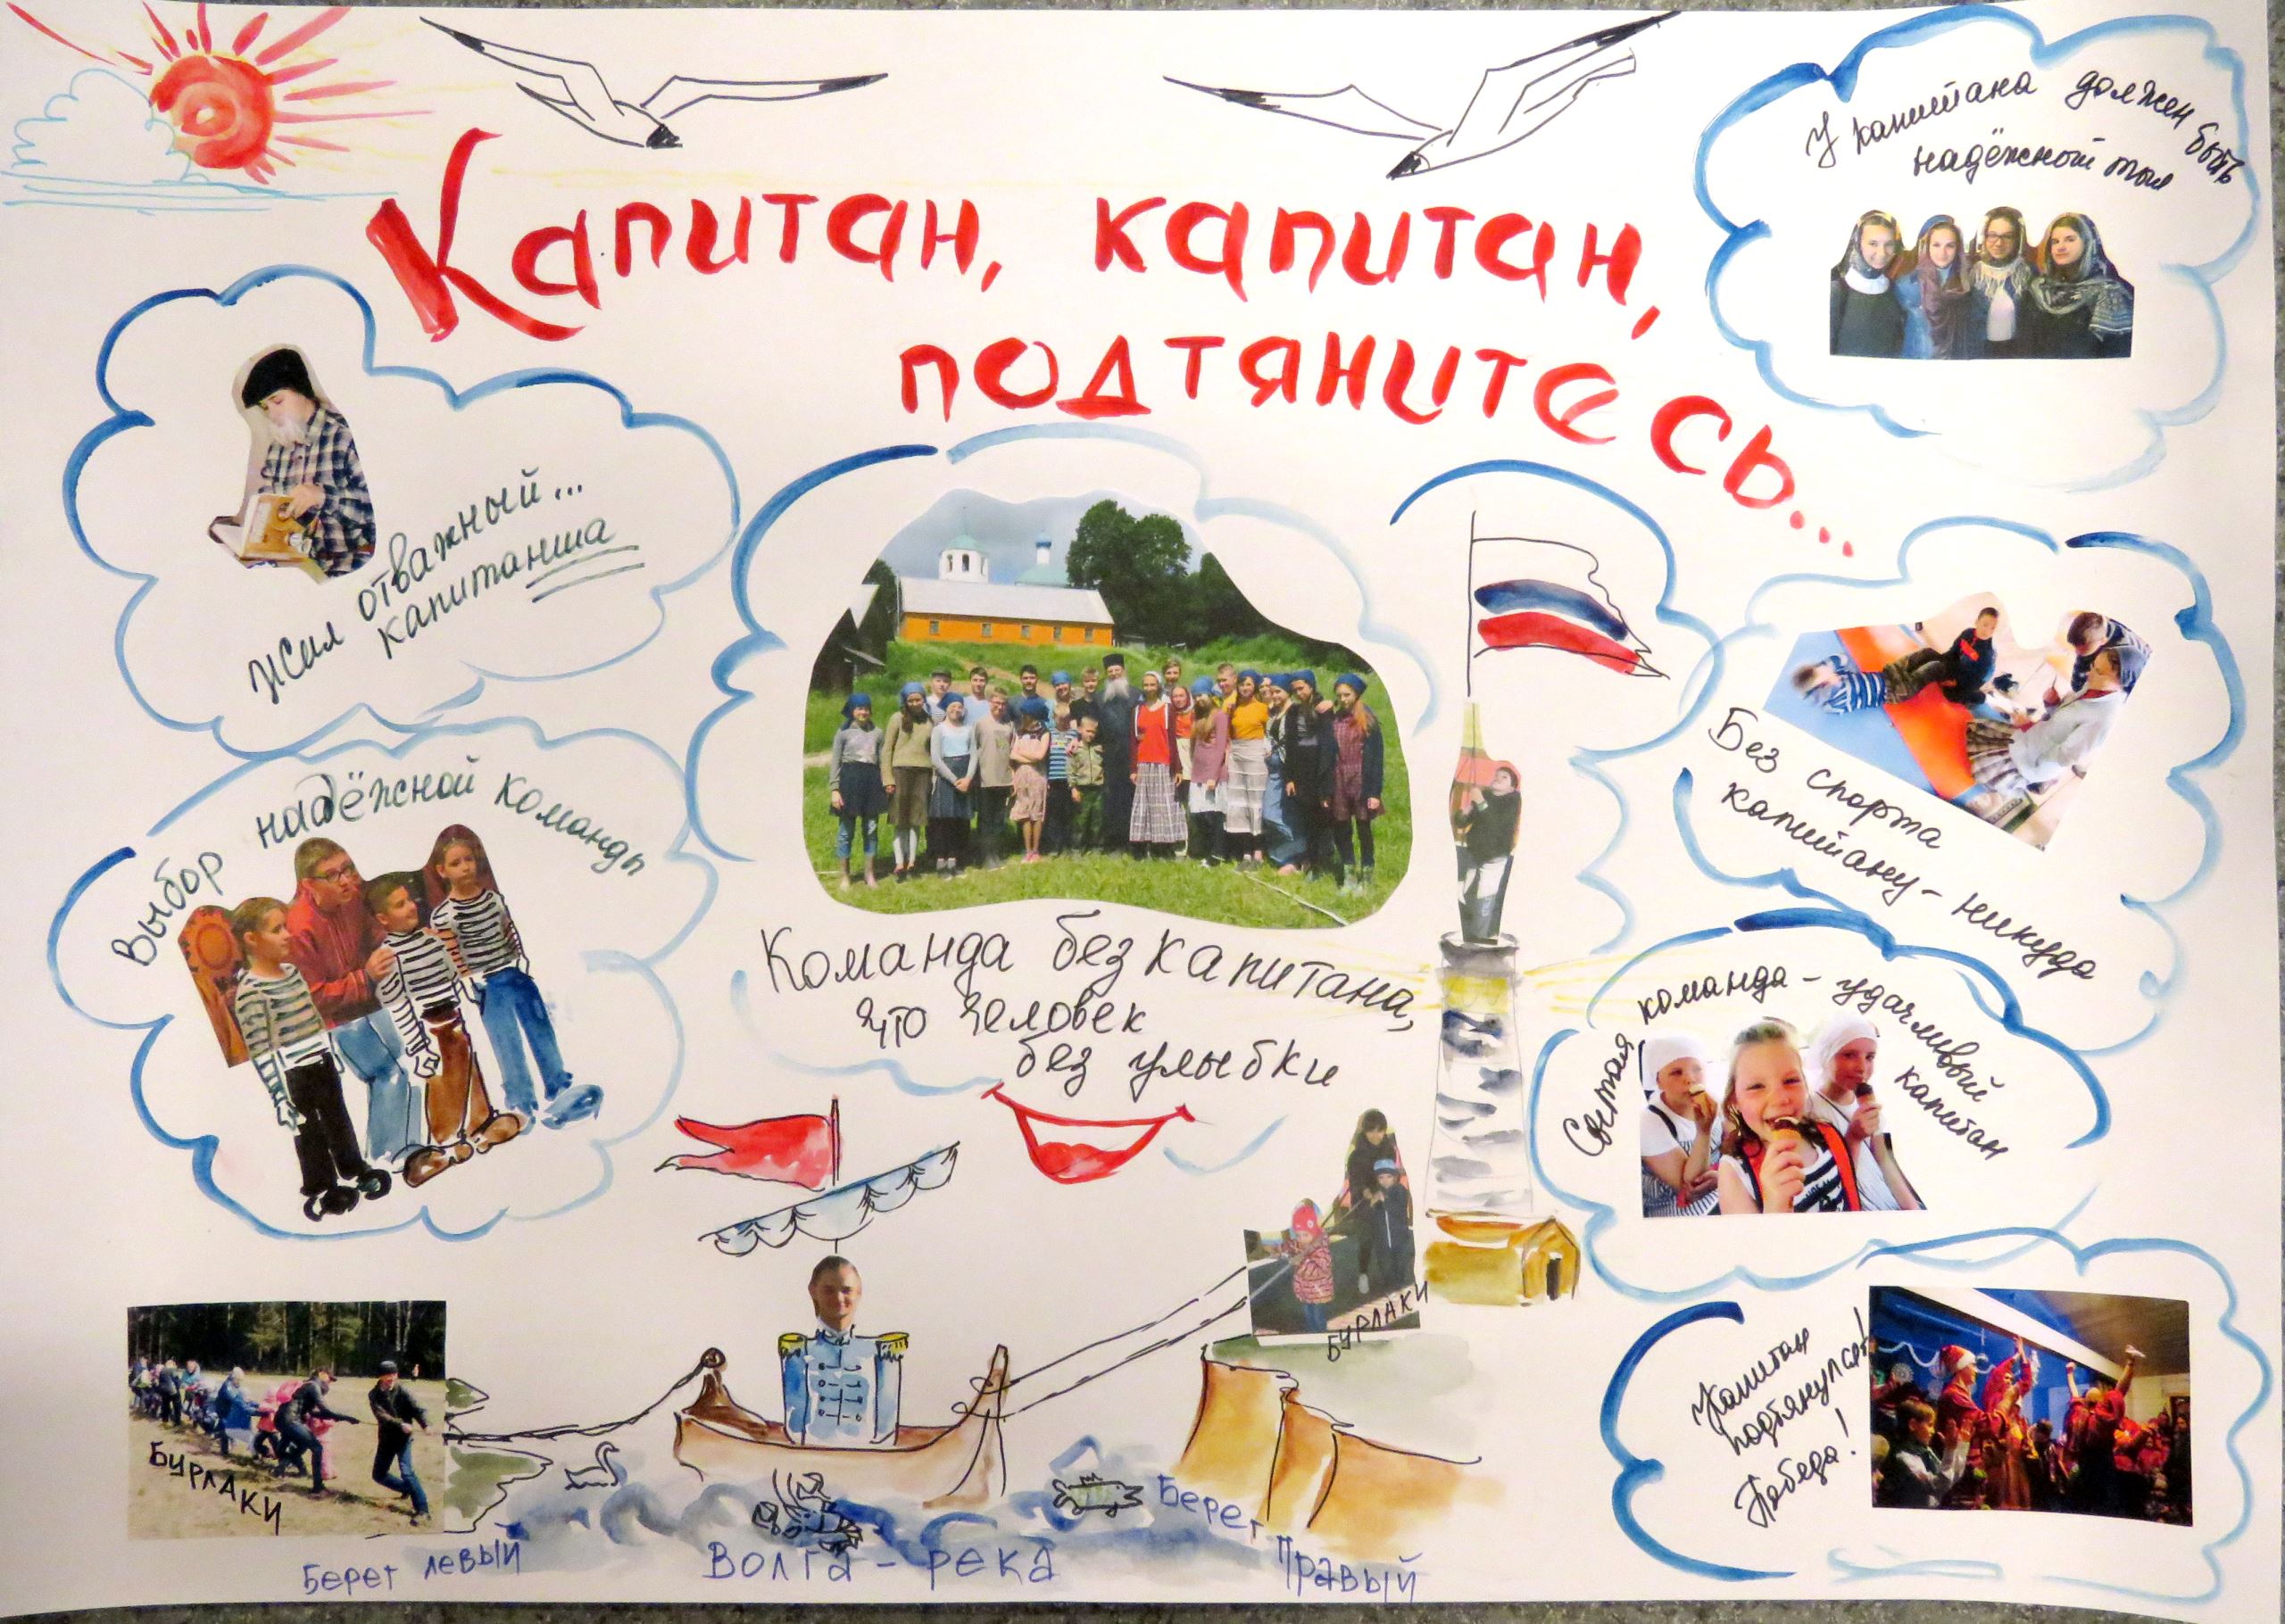 Капитан, капитан,
подтянитесь...
У капитана должен быть
надёжный тыл
Жил отважный...
капитанша
Выбор надёжной команды
Команда без капитана,
что человек
без улыбки
Без спорта
капитану - никуда
Сытая команда - удачливый
капитан
Капитан
подтянулся!
Победа!
Бурлаки
Бурлаки
Берег левый
Волга - река
Берег
Правый